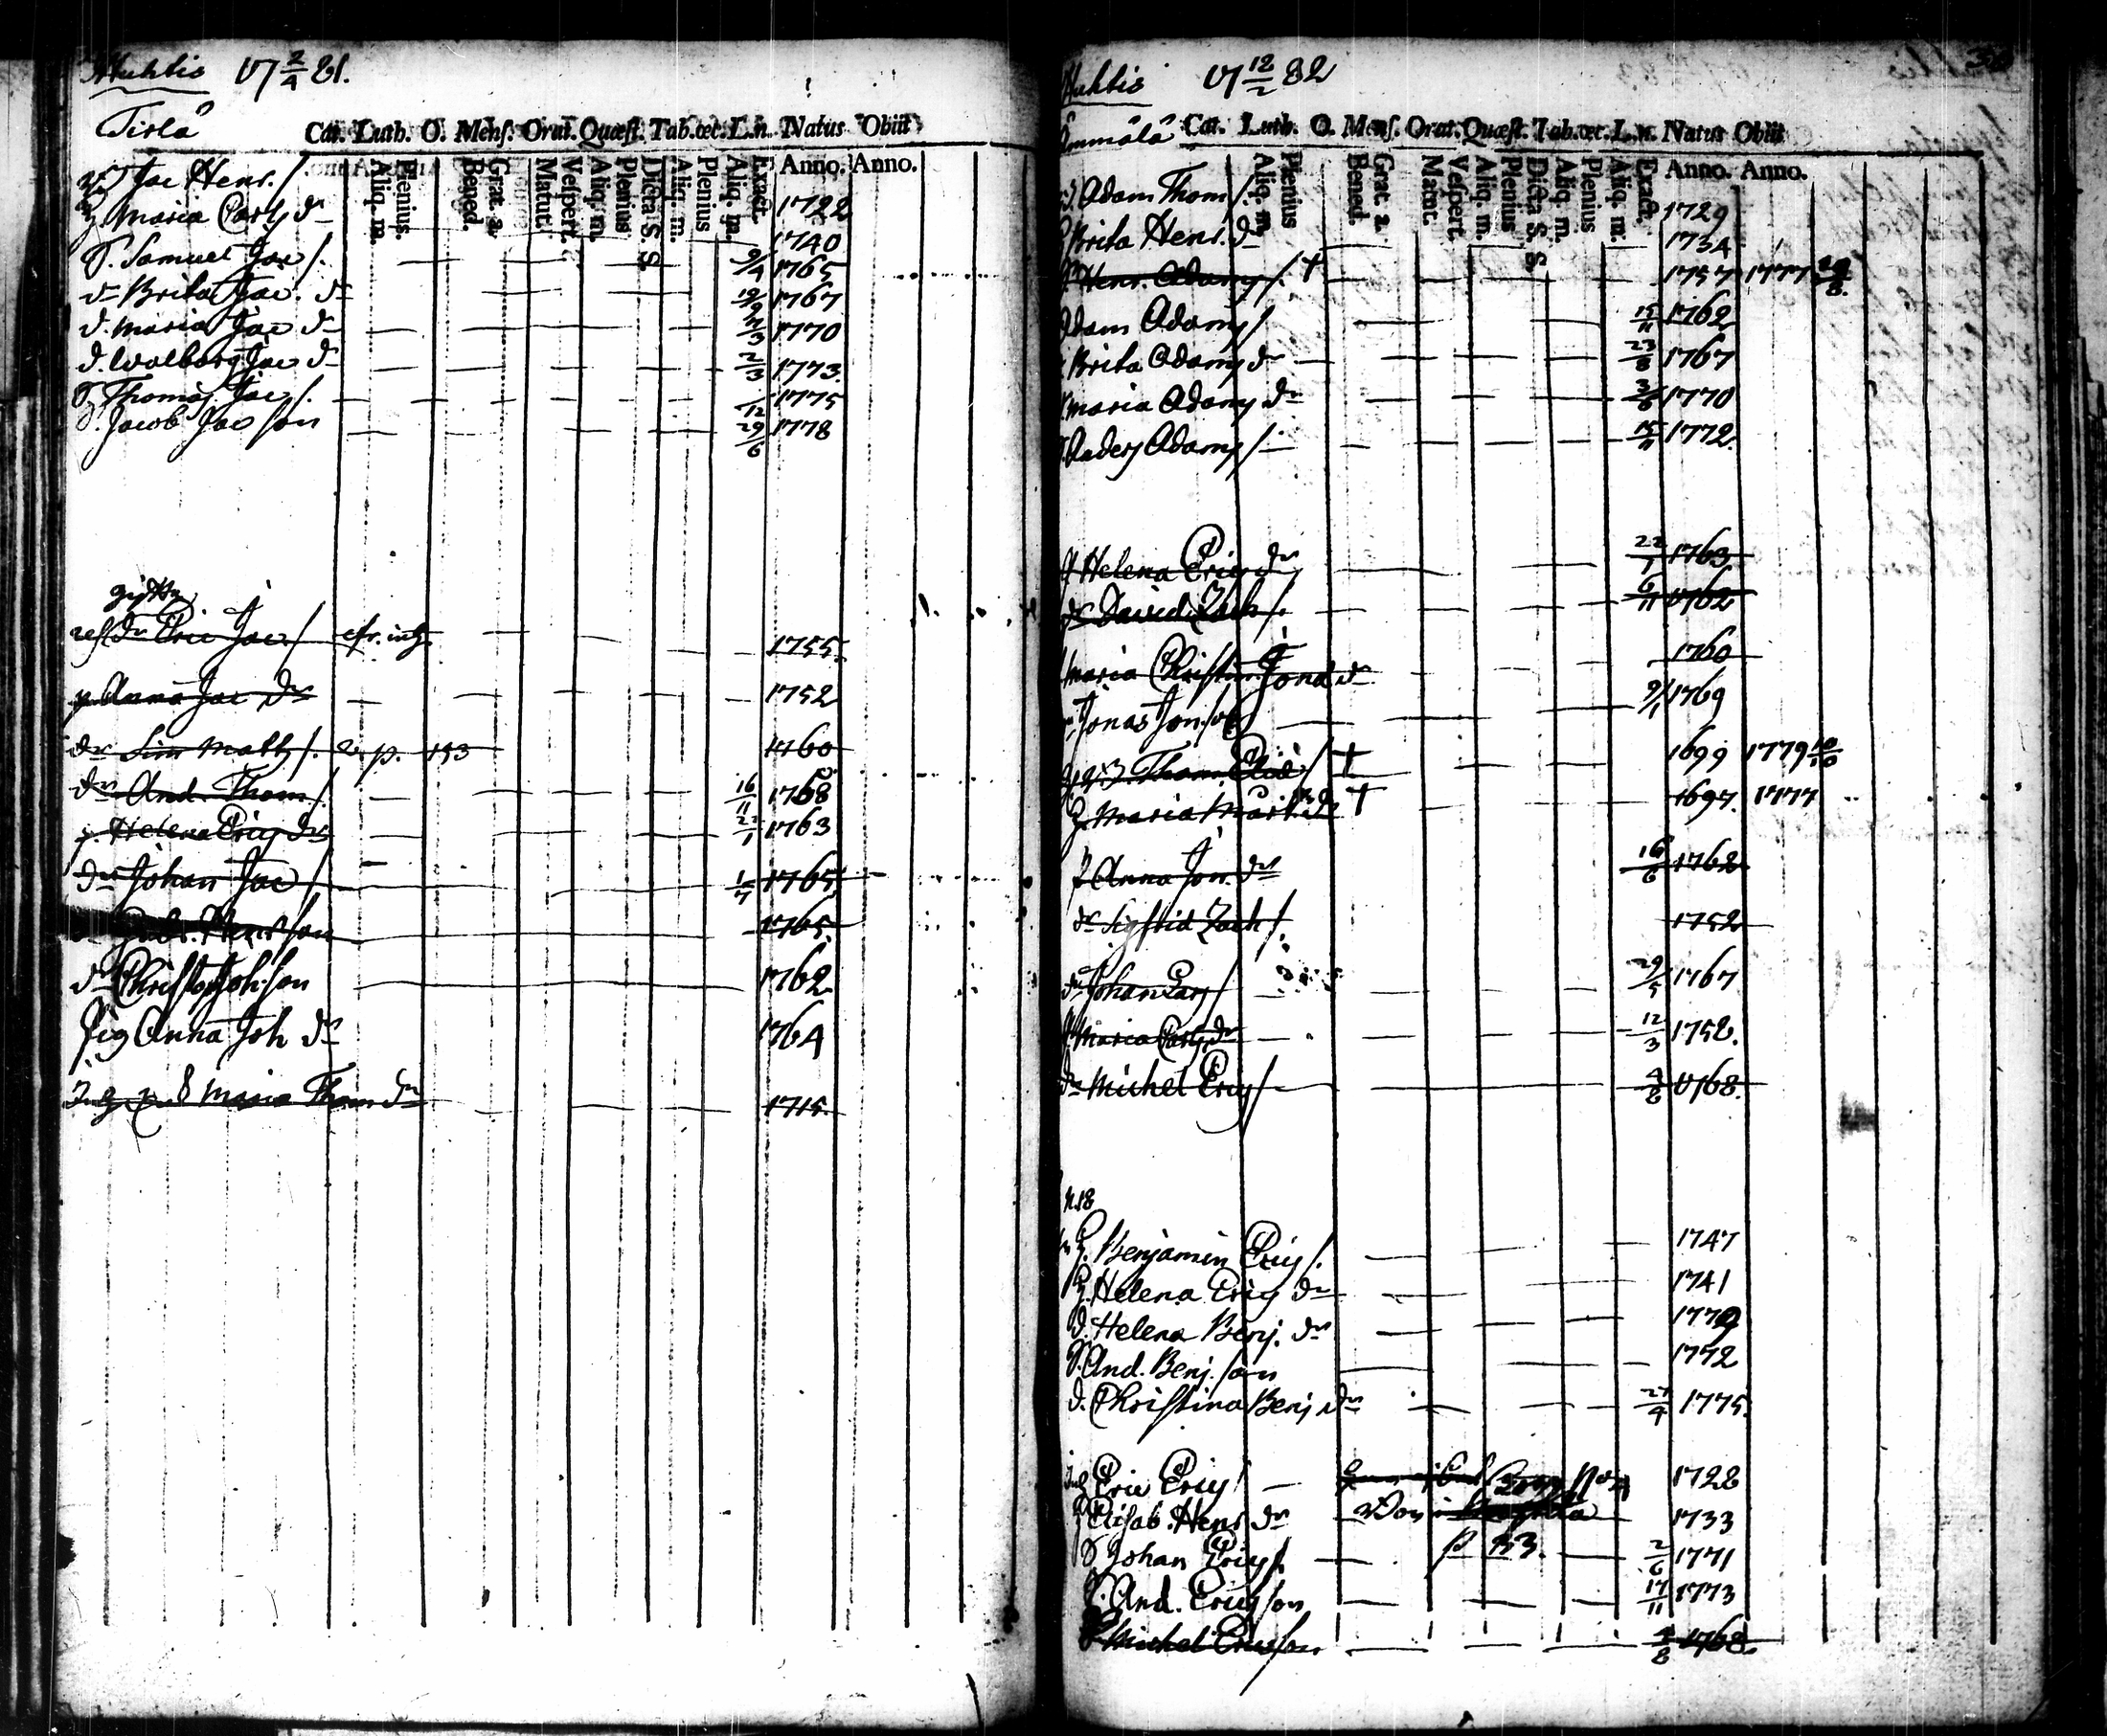 Huhtis 17 2/4 81.
Tisla
Cat. Luth. O. Mens. Orat. Quæst. Tab. œc. L. n. Natus Obiit
Aliq. m. Plenius. Bened. Grat. a. Matut. Vespert. Aliq. m. Plenius Dicta S. S. Aliq. m. Plenius Aliq. m. Exact. Anno. Anno.
Jac Henr. / 1722
Maria Carls dr 1740
S. Samuel Jac /. 9/4 1765
dr Brita Jac. dr 1767
d. Maria Jac dr 1770
d. Walborg Jac dr 2/3 1773.
S. Thomas Jac /. 1775
S. Jacob Jac son 29/6 1778
dr Eric Jac / 1755.
p Anna Jac dr 1752
dr Sim Matts /. v. p. 193 1760
dr And. Thom /. 16/11 1768
p. Helena Erics dr 22/1 1763
dr Johan Jac / 1/7 1765.
Henr son 1765.
dr Christ Joh son 1762
pig Anna Joh dr 1764
Maria Thom dr 1715.
Huhtis 17 12/2 82
Cat. Luth. O. Mens. Orat. Quæst. Tab. œc. L. n. Natus Obiit
Aliq. m. Plenius Bened. Grat. a. Matut. Vespert. Aliq. m. Plenius Dicta S. S. Aliq. m. Plenius Aliq. m. Exact. Anno. Anno.
Adam Thom /. 1729
Brita Henr. dr 1734
Henr. Adams /. † 1757 1777
Adam Adams / 15/11 1762
Brita Adams dr 23/8 1767
Maria Adams dr 3/6 1770
Anders Adams / 15/11 1772.
Helena Erics dr 22/1 1763
dr David Zach /. 6/11 1762
Maria Christin Jona dr 1760
Jonas Jonson 9/1 1769
Thom. / † 1699 1779
Maria Mart dr † 1697. 1777
p Anna Jon. dr 16/6 1762
dr Sigfrid Zach /. 1752
dr Johan Cars / 29/5 1767
Maria Carls dr 12/3 1752.
dr Michel Erics / 4/8 1768.
N. 18
Benjamin Erics /. 1747
Helena Erics dr 1741
d. Helena Benj. dr 1770
S. And. Benj. son 1772
d. Christina Benj dr 27/4 1775.
Eric Erics / 1728
Elisab. Henr dr 1733
S Johan Erics /. p 93. 2/6 1771
S. And. Ericsson 17/11 1773
S Michel Ericsson 4/8 1768.